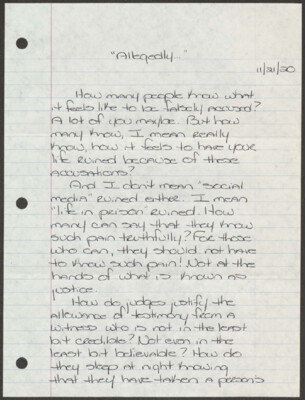 "Allegedly"
11/21/20
How many people know what
it feels like to be falsely accused?
A lot of you maybe. But how
many know, I mean really
know, how it feels to have your
life ruined because of these
accusations?
And I don't mean "social
media" ruined either. I mean
"life in prison" ruined. How
many can say that they know
such pain truthfully? For those
who can, they should not have
to know such pain! Not at the
hands of what is known as
justice.
How do judges justify the
allowance of testimony from a
witness who is not in the least
bit credible? Not even in the
least bit believable? How do
they sleep at night knowing
that they have taken a person's